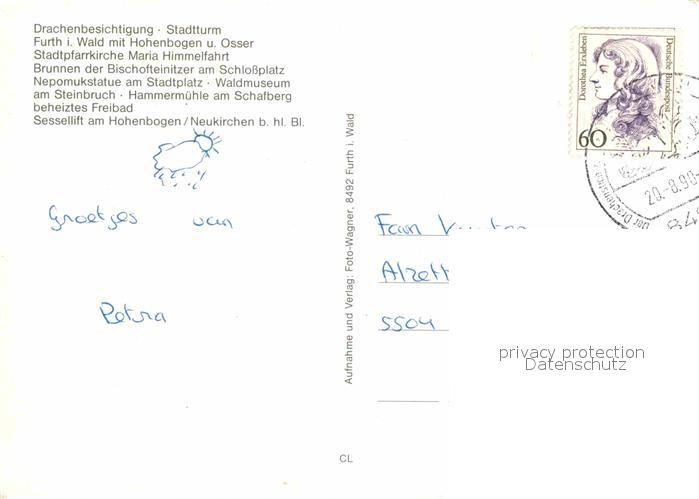 Drachenbesichtigung · Stadtturm
Furth i. Wald mit Hohenbogen u. Osser
Stadtpfarrkirche Maria Himmelfahrt
Brunnen der Bischofteinitzer am Schloßplatz
Nepomukstatue am Stadtplatz · Waldmuseum
am Steinbruch · Hammermühle am Schafberg
beheiztes Freibad
Sessellift am Hohenbogen/Neukirchen b. hl. Bl.
Groetjes van
Petra
Aufnahme und Verlag: Foto-Wagner, 8492 Furth i. Wald
CL
Dorothea Erxleben
Deutsche Bundespost
60
20.-8.90
Fam V
Alzett
5504
privacy protection
Datenschutz